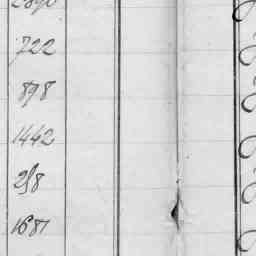 722
898
1442
258
1681